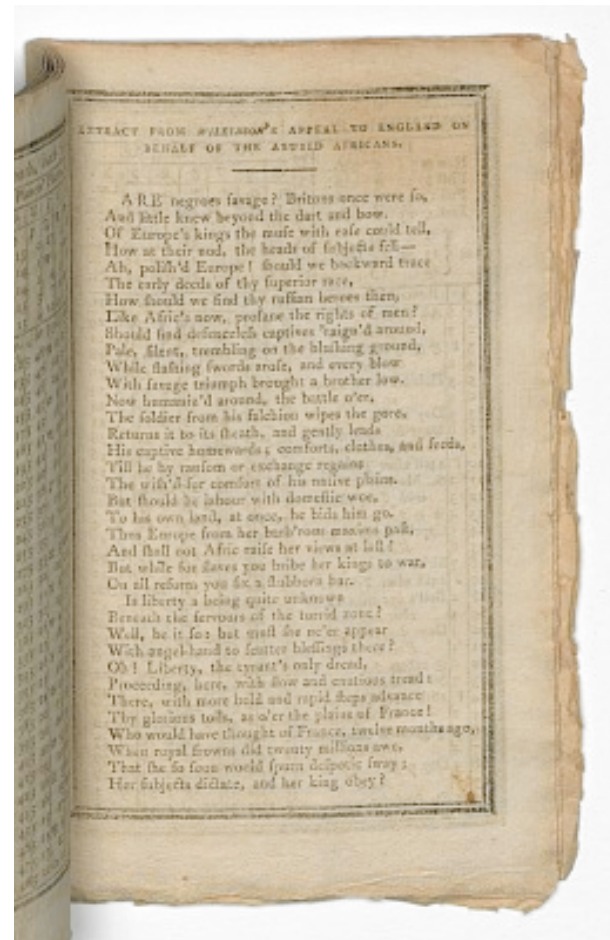 EXTRACT FROM WILKINSON'S APPEAL TO ENGLAND ON
BEHALF OF THE ABUSED AFRICANS.
ARE negroes ſavage? Britons once were ſo,
And little knew beyond the dart and bow.
Of Europe's kings the muſe with eaſe could tell,
How at their nod, the heads of ſubjects fell—
Ah, poliſh'd Europe! ſhould we backward trace
The early deeds of thy ſuperior race,
How ſhould we find thy ruffian heroes then,
Like Afric's now, profane the rights of men?
Should find defenceleſs captives 'raign'd around,
Pale, ſilent, trembling on the bluſhing ground,
While flaſhing ſwords aroſe, and every blow
With ſavage triumph brought a brother low.
Now humaniz'd around, the battle o'er,
The ſoldier from his falchion wipes the gore,
Returns it to its ſheath, and gently leads
His captive homewards; comforts, clothes, and feeds,
Till he by ranſom or exchange regains
The wiſh'd-for comfort of his native plains.
But ſhould he labour with domeſtic woe,
To his own land, at once, he bids him go.
Thus Europe from her barb'rous maxims paſt,
And ſhall not Afric raiſe her views at laſt?
But while for ſlaves you bribe her kings to war,
On all reform you fix a ſtubborn bar.
Is liberty a being quite unknown
Beneath the fervours of the torrid zone?
Well, be it ſo: but muſt ſhe ne'er appear
With angel-hand to ſcatter bleſſings there?
Oh! Liberty, the tyrant's only dread,
Proceeding, here, with ſlow and cautious tread:
There, with more bold and rapid ſteps advance
Thy glorious toils, as o'er the plains of France!
Who would have thought of France, twelve months ago,
When royal frowns did twenty millions awe,
That ſhe ſo ſoon would ſpurn deſpotic ſway;
Her ſubjects dictate, and her king obey?